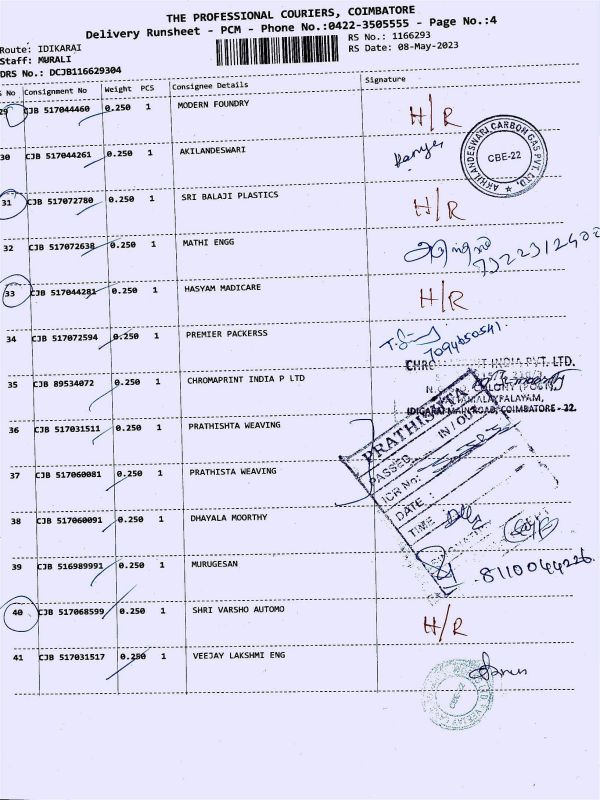 THE PROFESSIONAL COURIERS, COIMBATORE
Delivery Runsheet - PCM - Phone No.:0422-3505555 - Page No.:4
Route: IDIKARAI
RS No.: 1166293
Staff: MURALI
RS Date: 08-May-2023
DRS No.: DCJB116629304
S No Consignment No Weight PCS Consignee Details Signature
29 CJB 517044460 0.250 1 MODERN FOUNDRY H/R
30 CJB 517044261 0.250 1 AKILANDESWARI
AKHILANDESWARI CARBON GAS PVT. LTD. CBE-22
31 CJB 517072780 0.250 1 SRI BALAJI PLASTICS H/R
32 CJB 517072638 0.250 1 MATHI ENGG
33 CJB 517044281 0.250 1 HASYAM MADICARE H/R
34 CJB 517072594 0.250 1 PREMIER PACKERSS
7094650541.
35 CJB 89534072 0.250 1 CHROMAPRINT INDIA P LTD
INDIA PVT. LTD.
IDIGARAI MAIN ROAD, COIMBATORE - 22.
36 CJB 517031511 0.250 1 PRATHISHTA WEAVING
PRATHISHTA
PASSED IN / OUT
ICR No:
DATE :
TIME
37 CJB 517060081 0.250 1 PRATHISTA WEAVING
38 CJB 517060091 0.250 1 DHAYALA MOORTHY
39 CJB 516989991 0.250 1 MURUGESAN
8110044226.
40 CJB 517068599 0.250 1 SHRI VARSHO AUTOMO H/R
41 CJB 517031517 0.250 1 VEEJAY LAKSHMI ENG
CBE-22